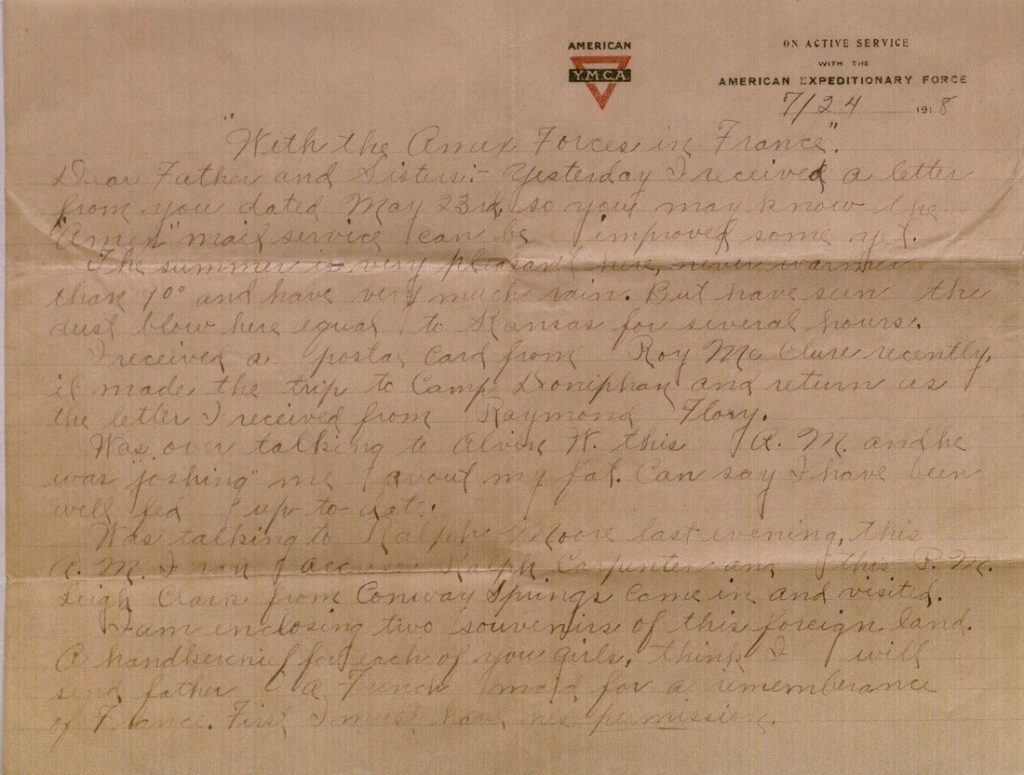 AMERICAN
Y.M.C.A.
ON ACTIVE SERVICE
WITH THE
AMERICAN EXPEDITIONARY FORCE
7/24 1918
"With the Amex Forces in France".
Dear Father and Sisters:- Yesterday I received a letter
from you dated May 23rd, so you may know the
"Amex" mail service can be improved some yet.
The summer is very pleasant here, never warmer
than 90° and have very much rain. But have seen the
dust blow here equal to Kansas for several hours.
I received a postal card from Roy Mc Clure recently,
it made the trip to Camp Doniphan and return as
the letter I received from Raymond Flory.
Was over talking to Alvin W. this A.M. and he
was "joshing" me about my fat. Can say I have been
well fed up-to-date.
Was talking to Ralph Moore last evening, this
A.M. I ran Ralph Carpenter and this P.M.
Leigh Clark from Conway Springs came in and visited.
I am enclosing two souvenirs of this foreign land.
A handkerchief for each of you girls, think I will
send father A French maid for a rememberance
of France. First I must have his permission.